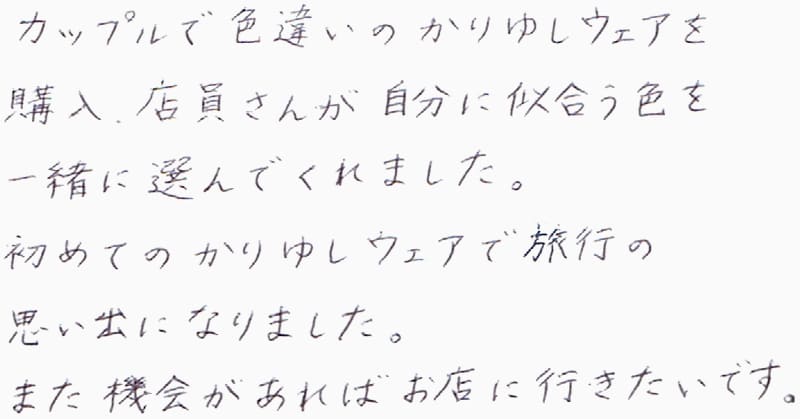 カップルで色違いのかりゆしウェアを
購入、店員さんが自分に似合う色を
一緒に選んでくれました。
初めてのかりゆしウェアで旅行の
思い出になりました。
また機会があればお店に行きたいです。